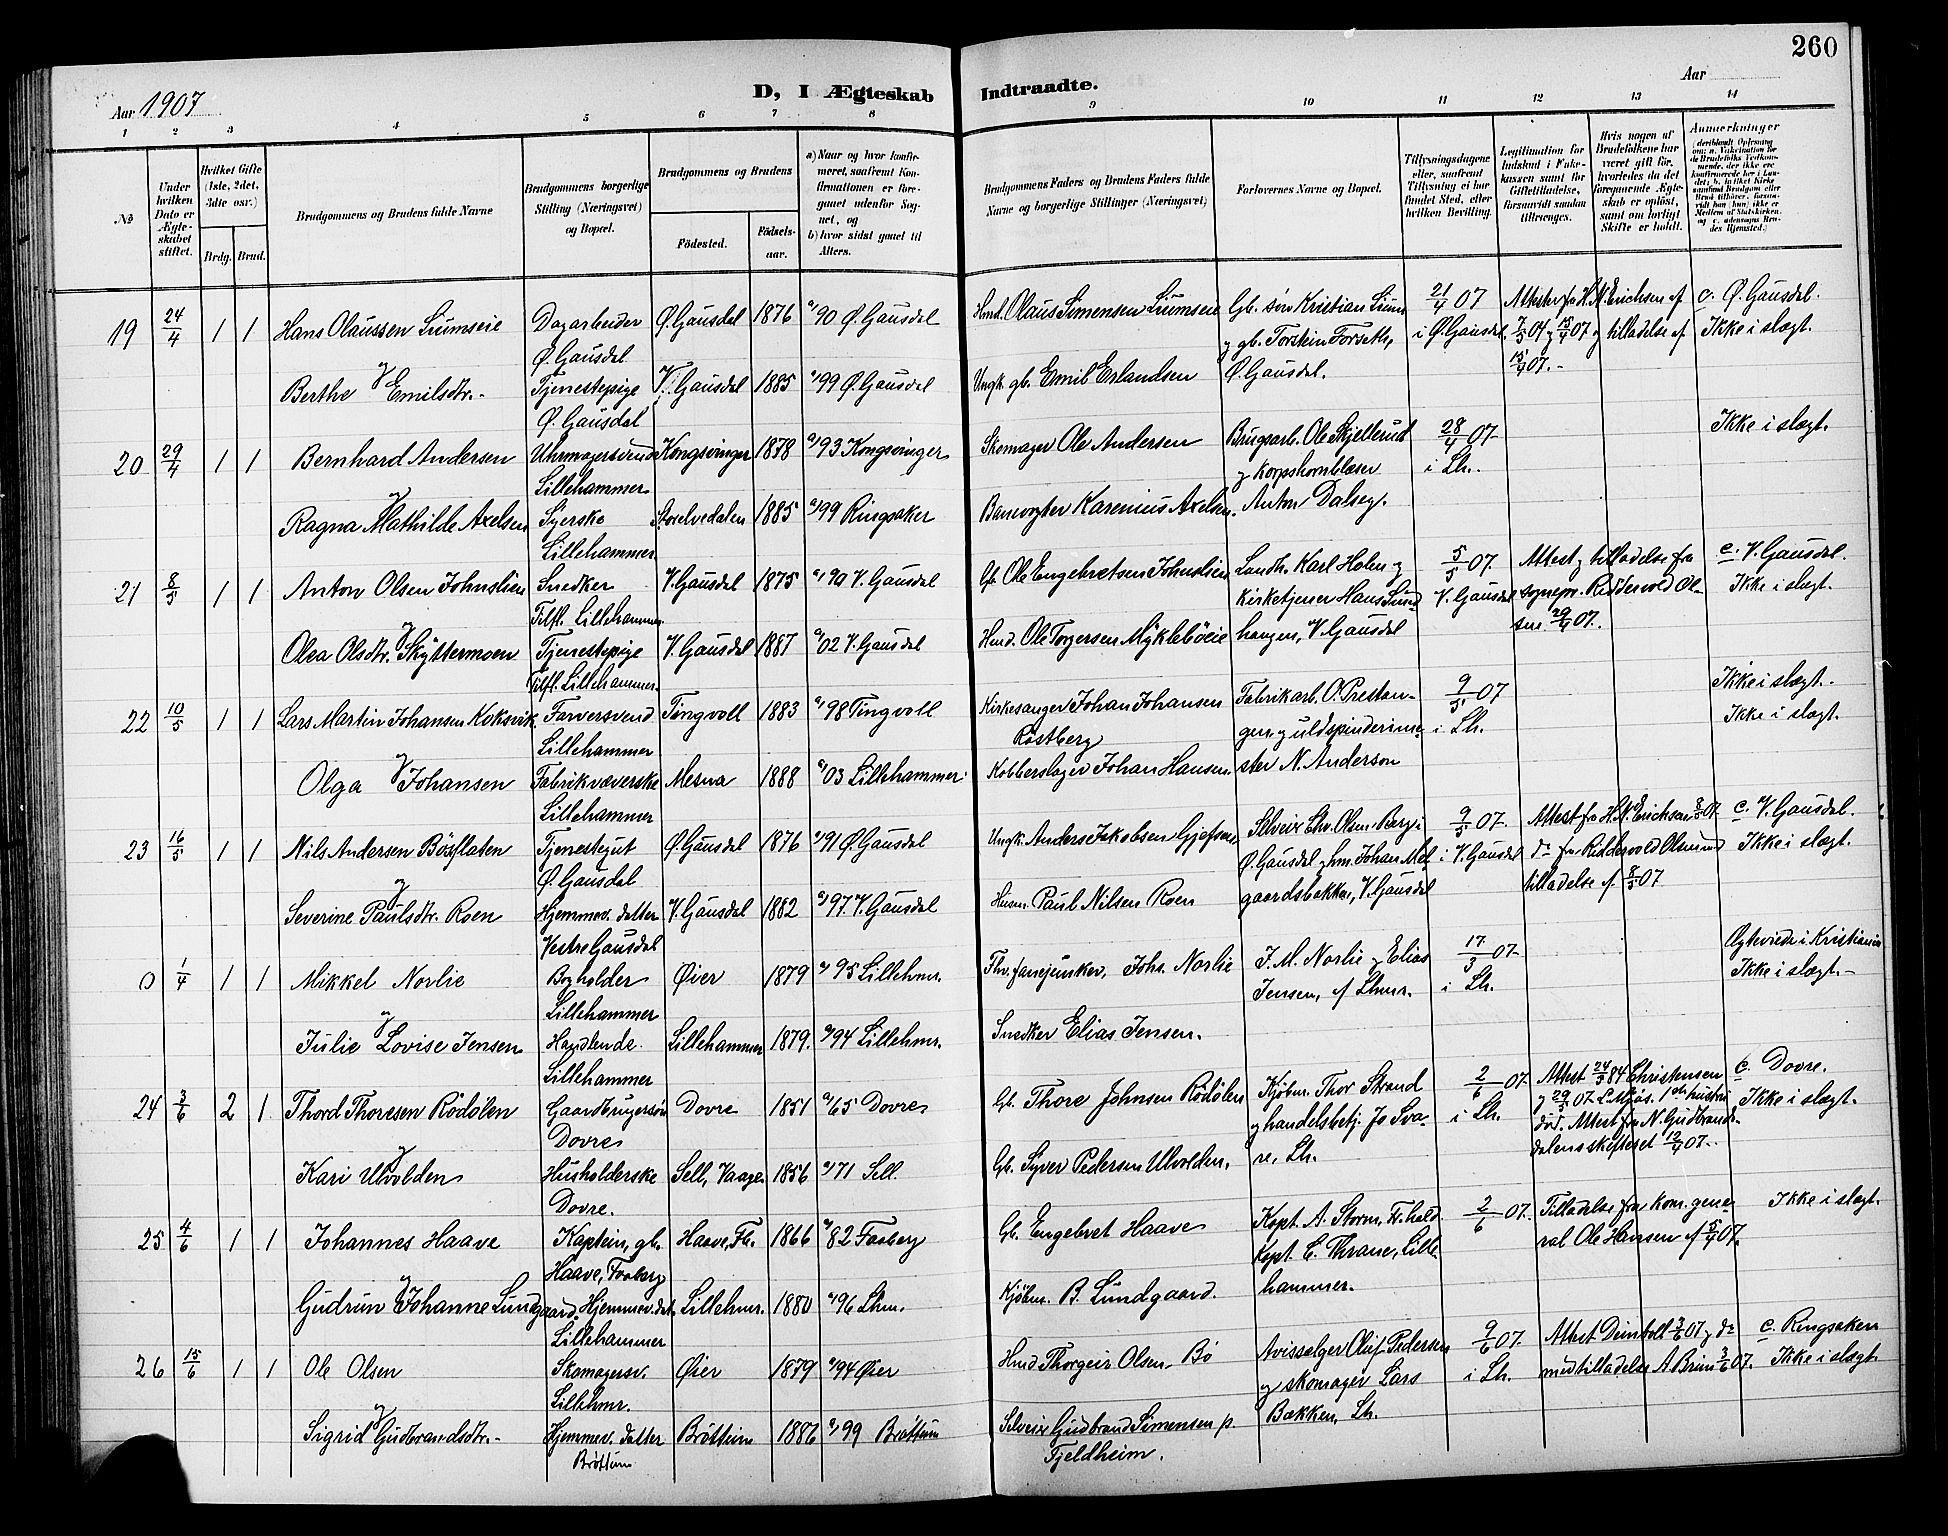 260
Aar 1907
D, I Ægteskab Indtraadte.
Aar
1 2 3 4 5 6 7 8 9 10 11 12 13 14
No
Under hvilken Dato er Ægteskabet stiftet.
Hvilket Gifte (1ste, 2det, 3die osv.)
Brdg. Brud.
Brudgommens og Brudens fulde Navne
Brudgommens borgerlige Stilling (Næringsvei) og Bopæl.
Brudgommens og Brudens
Födested.
Födsels-aar.
a) Naar og hvor konfirmeret, saafremt Konfirmationen er foregaaet udenfor Sognet, og
b) hvor sidst gaaet til Alters.
Brudgommens Faders og Brudens Faders fulde Navne og borgerlige Stillinger (Næringsvei)
Forlovernes Navne og Bopæl.
Tillysningsdagene eller, saafremt Tillysning ei har fundet Sted, efter hvilken Bevilling.
Legitimation for Indskud i Enkekassen samt for Giftetilladelse, forsaavidt saadan tiltrænges.
Hvis nogen af Brudefolkene har været gift för, hvorledes da det foregaaende Ægteskab er oplöst, samt om lovligt Skifte er holdt.
Anmerkninger
19 24/4 1 1 Hans Olaussen Liumseie Dagarbeider Ø. Gausdal Ø. Gausdal 1876 a/90 Ø. Gausdal Hmd. Olaus Simensen Liumseie Gb. sön Kristian Lium y gb. Torstein Forseth, Ø. Gausdal. 21/4 07 i Ø. Gausdal. Attester fra H. N. Erichsen af 7/3 04 y 15/4 07 y tilladelse af 15/4 07.- c. Ø. Gausdal. Ikke i slægt.
Berthe Emilsdtr.- Tjenestepige Ø. Gausdal V. Gausdal 1885 a/99 Ø. Gausdal Ungk. gb. Emil Erlandsen
20 29/4 1 1 Bernhard Andersen Uhrmagersvend Lillehammer Kongsvinger 1878 a/93 Kongsvinger Skomager Ole Andersen Brugsarb. Ole Skjellerud y Korpshornblæser Anton Dalseg. 28/4 07 i Lh. Ikke i slægt.
Ragna Mathilde Axelsen Syerske Lillehammer Storelvedalen 1885 a/99 Ringsaker Banevogter Karenius Axelsen.
21 8/5 1 1 Anton Olsen Johnslien Snedker Tilfl. Lillehammer V. Gausdal 1875 a/90 V. Gausdal Gb. Ole Engebretsen Johnslien Landh. Karl Holen y Kirketjener Hans Sundhaugen, V. Gausdal 5/5 07. V. Gausdal Attest y tilladelse fra sognepr. Riddervold Olsen 29/4 07. c. V. Gausdal. Ikke i slægt.
Olea Olsdtr. Skyttermoen Tjenestepige Tilfl. Lillehammer V. Gausdal 1887 a/02 V. Gausdal Hmd. Ole Torgersen Mykleböeie
22 10/5 1 1 Lars Martin Johansen Koksvik Farversvend Lillehammer Tingvoll 1883 a/98 Tingvoll Kirkesanger Johan Johansen Röstberg Fabrikarb. O. Prestangen y uldspinderimester N. Anderson 9/5 07 i Lh. Ikke i slægt. Ikke i slægt.
Olga Johansen Fabrikvæverske Lillehammer Mesna 1888 a/03 Lillehammer Kobberslager Johan Hansen
23 16/5 1 1 Nils Andersen Bösflaten Tjenestegut Ø. Gausdal Ø. Gausdal 1876 a/91 Ø. Gausdal Ungk. Anders Jakobsen Selveier Chr. Olsen Berg i Ø. Gausdal y hm. Johan Melgaardsbakken, V. Gausdal 9/5 07. i V. Gausdal Attest fra H. N. Erichsen 8/5 07. do fra Riddervold Olsen med tilladelse af 8/5 07 c. V. Gausdal. Ikke i slægt.
Severine Paulsdtr. Roen Hjemmev. datter Vestre Gausdal V. Gausdal 1882 a/97 V. Gausdal Husm. Paul Nilsen Roen
0 1/4 1 1 Mikkel Norlie Bogholder Lillehammer Øier 1879 a/95 Lillehmr. Fhv. fanejunker, Johs. Norlie J. M. Norlie y Elias Jensen, af Lhmr. 17/3 07 i Lh. Ægteviede i Kristiania Ikke i slægt.-
Julie Lovise Jensen Handlende Lillehammer Lillehammer 1879. a/94 Lillehmr. Snedker Elias Jensen.
24 3/6 2 1 Thord Thoresen Rödölen Gaardbrugersön Dovre Dovre 1851 a/65 Dovre Gb. Thore Johnsen Rödölen Kjöbm. Thor Strand y handelsbetj. Jo Svare, Lh. 2/6 07. i Lh. Attest 24/5 84 Christensen y 29/5 07. L. Mjös. 1ste hustru död. Attest fra N. Gudbrandsdalens skifteret 12/4 07.. c. Dovre. Ikke i slægt.
Kari Ulvolden Husholderske Dovre. Sell, Vaage 1856 a/71 Sell. Gb. Syver Pedersen Ulvolden.
25 4/6 1 1 Johannes Haave Kaptein, gb. Haave, Faaberg Haave, Fb. 1866 a/82 Faaberg Gb. Engebret Haave Kapt. A. Storm, Fr.hald Kapt. C. Thrane, Lillehammer. 2/6 07. Tilladelse fra kom. general Ole Hansen af 5/4 07. Ikke i slægt.
Gudrun Johanne Lundgaard Hjemmev. dat. Lillehammer Lillehmr. 1880 a/96 Lhm. Kjöbm. B. Lundgaard.
26 15/6 1 1 Ole Olsen Skomagersv. Lillehmr. Øier 1879 a/94 Øier Hmd Thorgeir Olsen Bö Avisselger Oluf Pedersen y skomager Lars Bakken, Lh. 9/6 07. i Lh. Attest 3/6 07 y do med tilladelse A. Brun 3/6 07. c. Ringsaker Ikke i slægt.
Sigrid Gudbrandsdtr.- Hjemmev. datter Bröttum Bröttum 1886 a/99 Bröttum Selveier Gudbrand Simensen p. Fjeldheim.